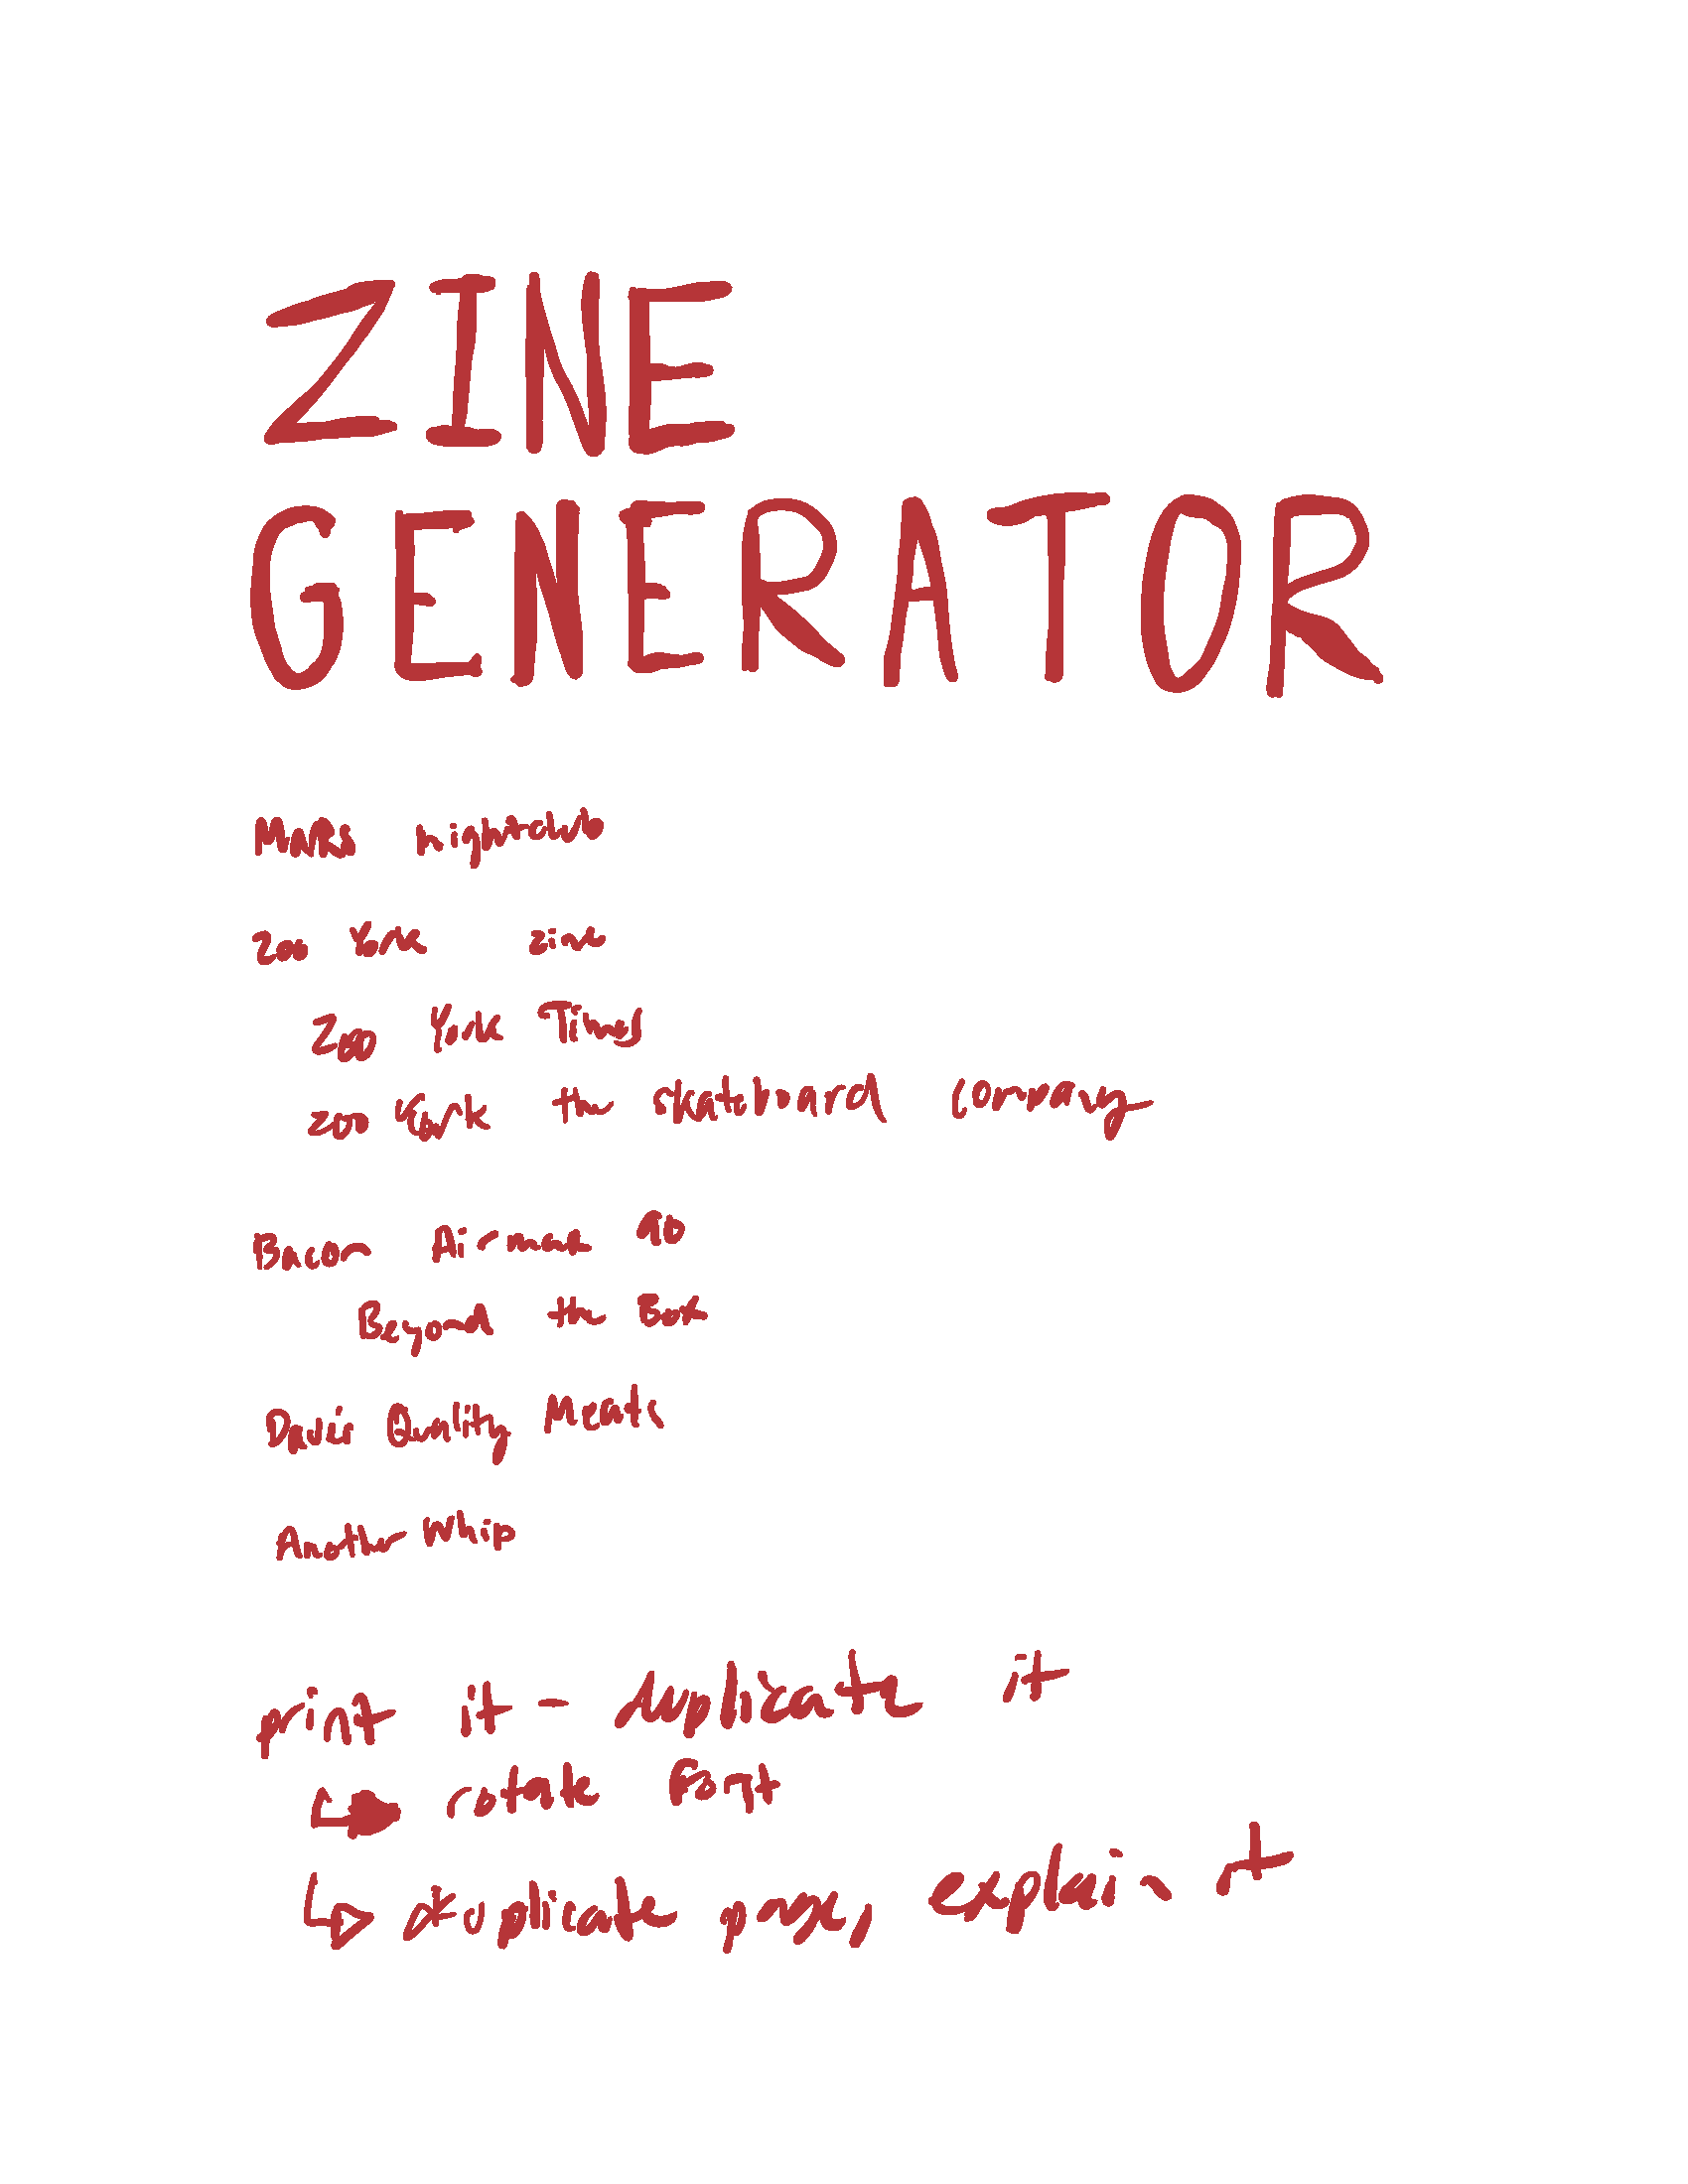 ZINE
GENERATOR
MARS nightclub
Zoo York zine
Zoo York Times
Zoo York the skateboard company
Bacon Air max 90
Beyond the Box
Dave's Quality Meats
Another Whip
print it - duplicate it
rotate font
duplicate page, explain it